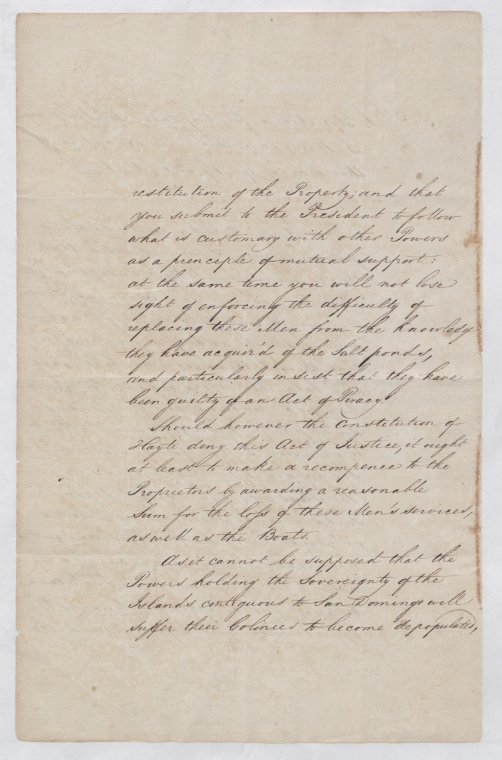 restitution of the Property; and that
you submit to the President to follow
what is customary with other Powers
as a principle of mutual support:
at the same time you will not lose
sight of enforcing the defficulty of
replacing these Men from the knowledge
they have acquir'd of the Salt ponds,
and particularly insist that they have
been guilty of an Act of Piracy.
Should however the Constitution of
Hayti deny this Act of Justice, it ought
at least to make a recompence to the
Proprietors by awarding a reasonable
Sum for the loss of these Men's services,
as well as the Boats.
As it cannot be supposed that the
Powers holding the Sovereignty of the
Islands contiguous to San Domingo will
suffer their Colonies to become depopulated,